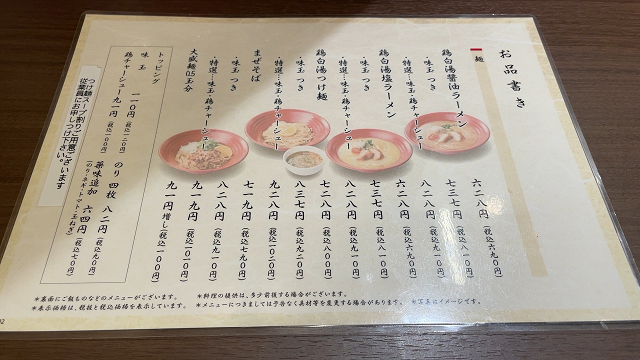 お品書き
麺
鶏白湯醤油ラーメン 六二八円(税込六九〇円)
・味玉つき 七三七円(税込八一〇円)
・特選…味玉・鶏チャーシュー 八二八円(税込九一〇円)
鶏白湯塩ラーメン 六二八円(税込六九〇円)
・味玉つき 七三七円(税込八一〇円)
・特選…味玉・鶏チャーシュー 八二八円(税込九一〇円)
鶏白湯つけ麺 七二八円(税込八〇〇円)
・味玉つき 八三七円(税込九二〇円)
・特選…味玉・鶏チャーシュー 九二八円(税込一〇二〇円)
まぜそば 七一九円(税込七九〇円)
・味玉つき 八二八円(税込九一〇円)
・特選…味玉・鶏チャーシュー 九一九円(税込一〇一〇円)
大盛麺0.5玉分 九一円増し(税込一〇〇円)
トッピング
味玉 一一〇円(税込一二〇円)
鶏チャーシュー 九一円(税込一〇〇円)
のり四枚 八二円(税込九〇円)
薬味追加 六四円(税込七〇円)
(のり・ネギ・トマト・玉ねぎ)
つけ麺スープ割りご用意ございます
従業員にお申しつけ下さい。
*裏面にご飯ものなどのメニューがございます。
*料理の提供は、多少前後する場合がございます。
*表示価格は、税抜と税込価格を表示しています。
*メニューにつきましては予告なく具材等を変更する場合があります。
*写真はイメージです。
02